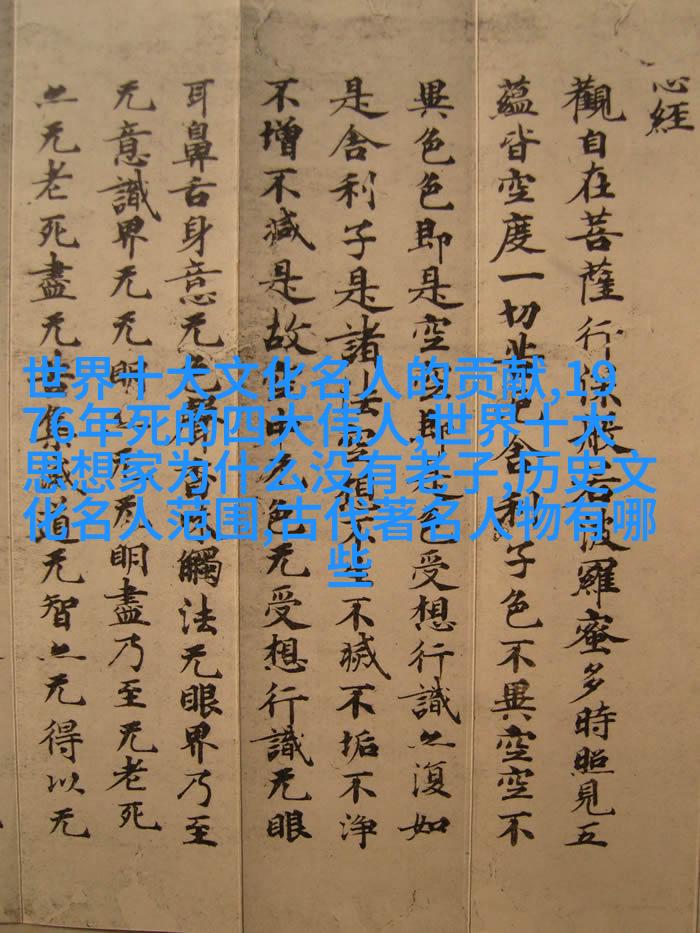 心經
觀自在菩薩行深般若波羅蜜多時照見五
蘊皆空度一切苦厄舍利子色不異空空不
異色色即是空空即是色受想行識亦復如
是舍利子是諸法空想不生不滅不垢不浄
不增不減是故空中无色无受想行識无眼
耳鼻舌身意无色聲香味觸法无眼界乃至
无意識界无无明亦无无明盡乃至无老死
亦无老死盡无苦集滅道无智亦无得以无
世界十大文化名人的贡献,19
76年死的四大伟人,世界十大
思想家为什么没有老子,历史文
化名人范围,古代著名人物有哪
些